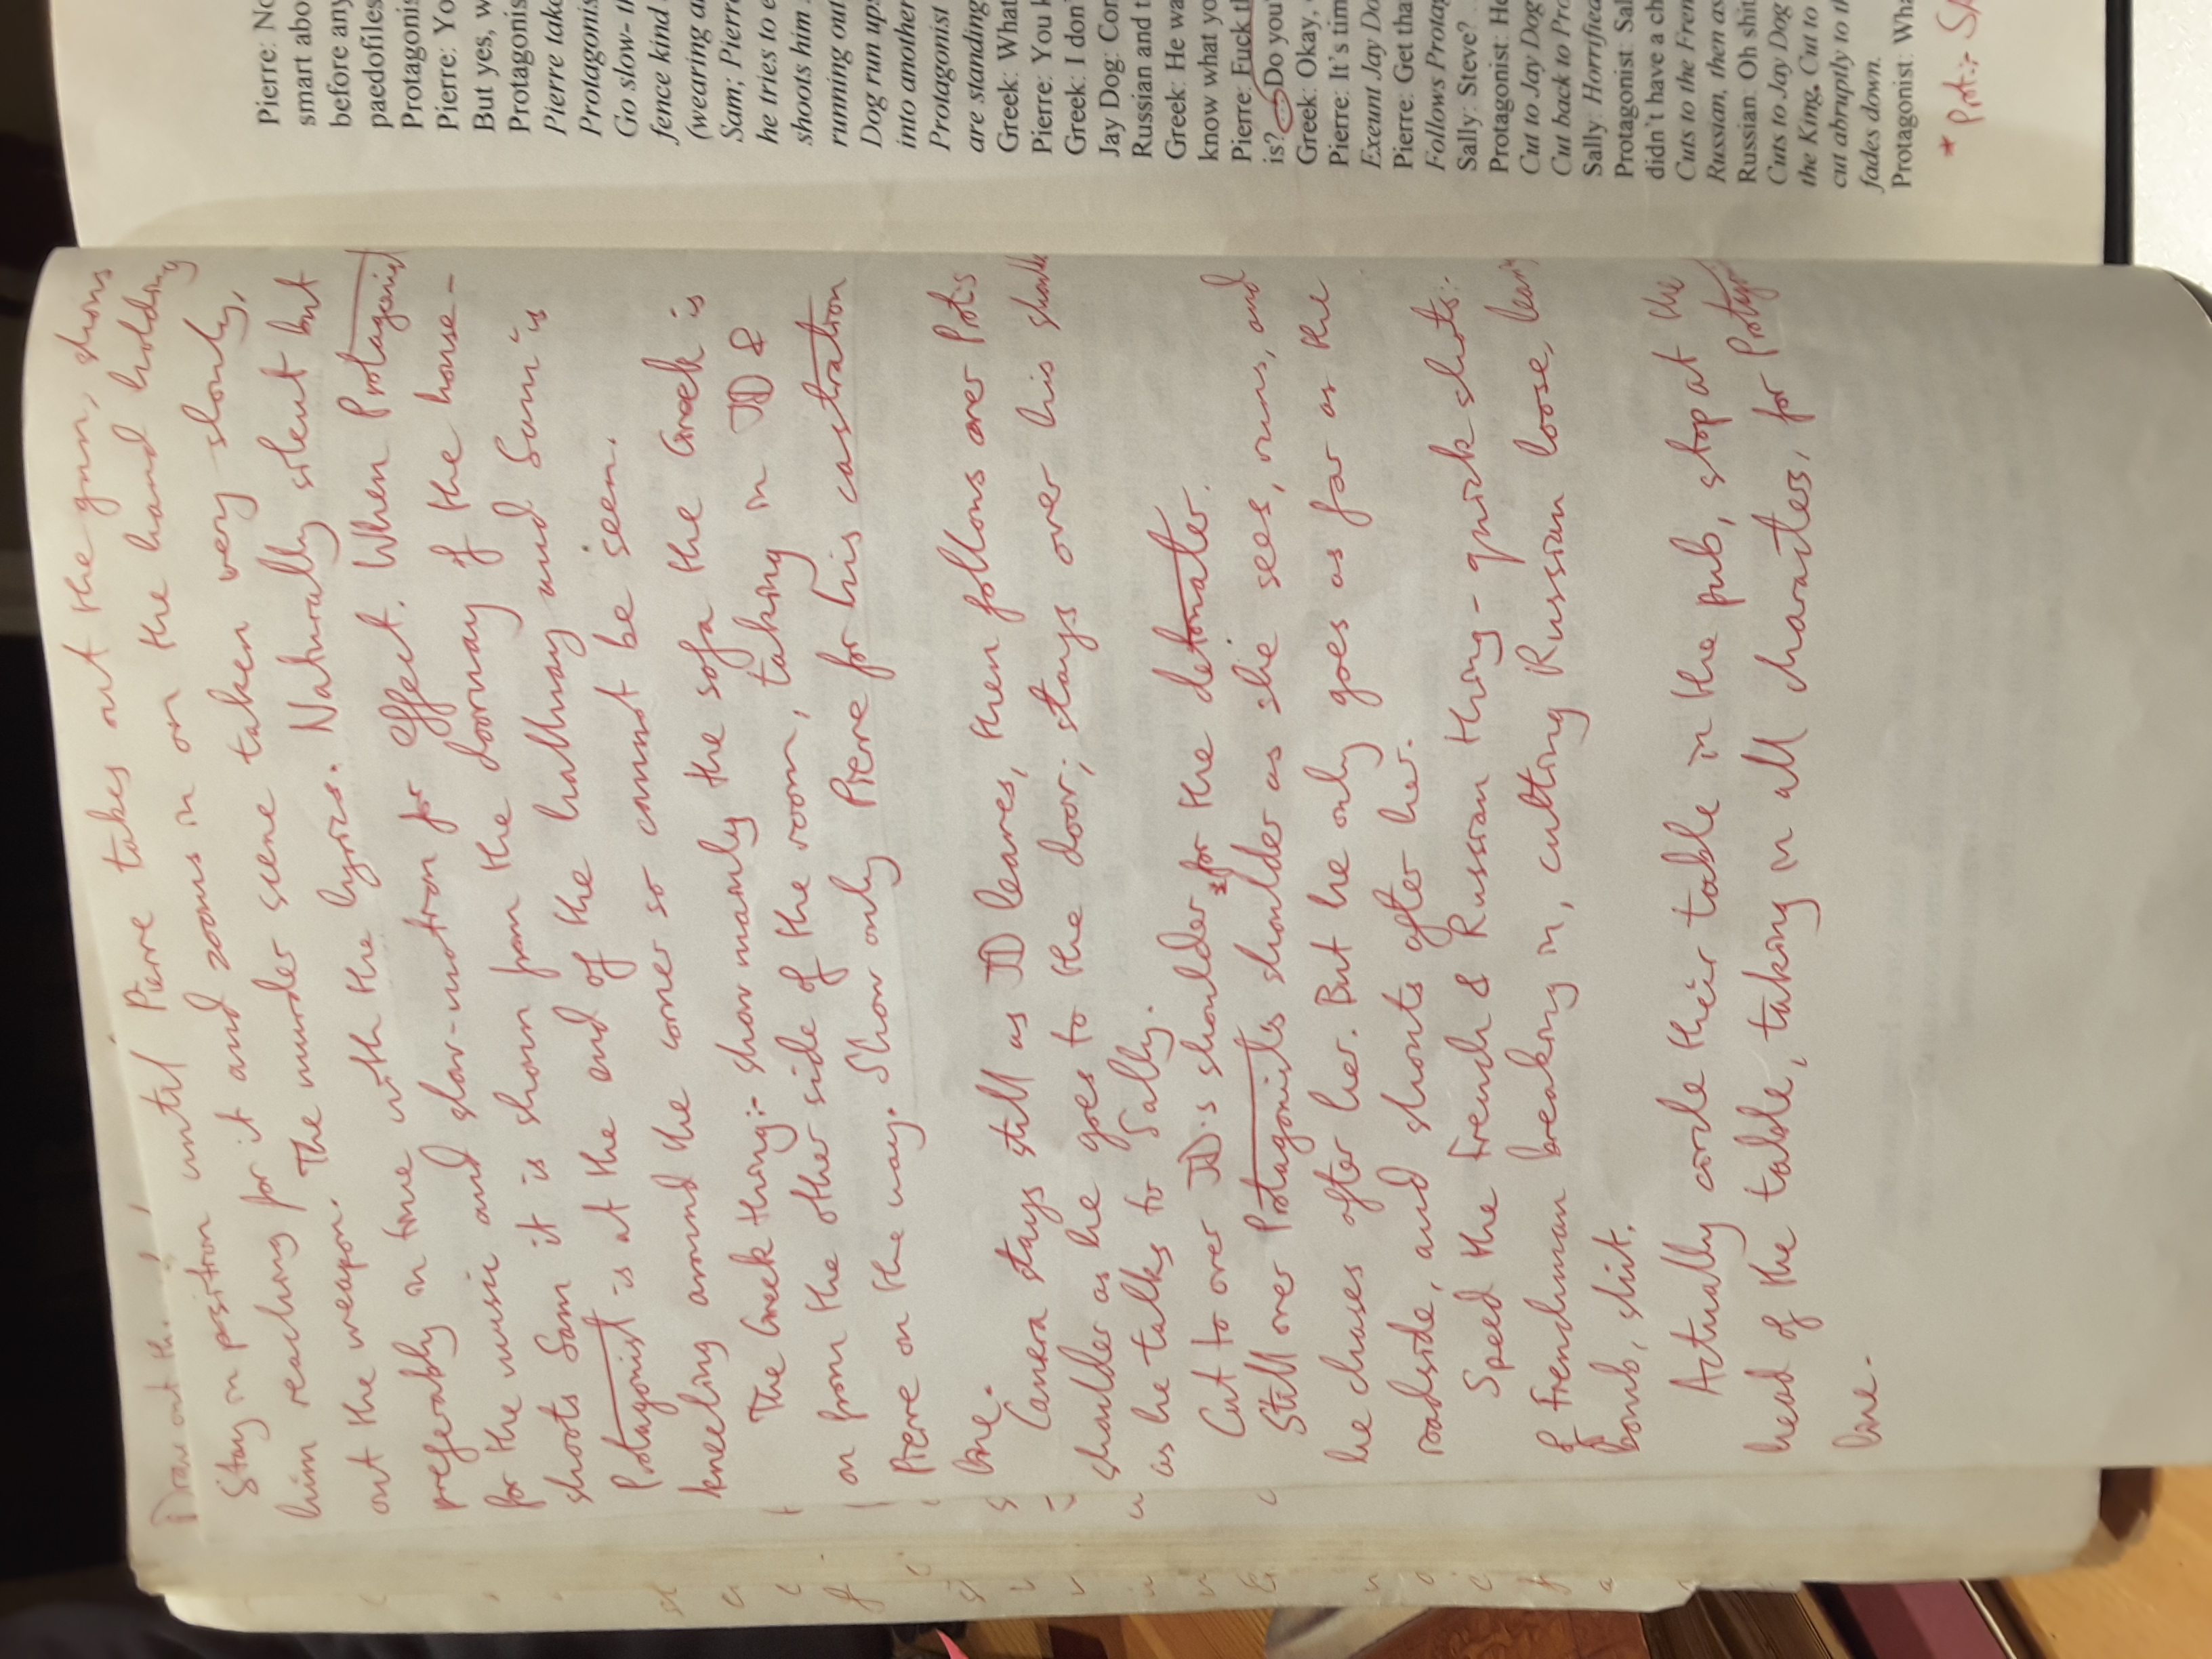 Draw out th
Stay in position until Pierre takes out the gun, shows
him reaching for it and zooms in on the hand holding
out the weapon. The murder scene taken very slowly,
preferably in time with the lyrics. Naturally silent but
for the music and slow-motion for effect. When Protagonist
shoots Sam it is shown from the doorway of the house-
Protagonist is at the end of the hallway and Sam is
kneeling around the corner so cannot be seen.
The Greek thing:- show mainly the sofa the Greek is
on from the other side of the room, taking in JD &
Pierre on the way. Show only Pierre for his castration
line.
Camera stays still as JD leaves, then follows over Prot's
shoulder as he goes to the door; stays over his shoulder
as he talks to Sally.
Cut to over JD's shoulder for the detonater.
Still over Protagonist's shoulder as she sees, runs, and
he chases after her. But he only goes as far as the
roadside, and shouts after her.
Speed the French & Russian thing - quick shots:-
of Frenchman breaking in, cutting Russian loose,
bomb, shit.
Actually circle their table in the pub, stop at the
head of the table, taking in all characters, for
line.
Pierre: No
smart abo
before any
paedofiles
Protagonis
Pierre: Yo
But yes, w
Protagonis
Pierre take
Protagonis
Go slow- th
fence kind
(wearing a
Sam; Pierr
he tries to e
shoots him
running out
Dog run up
into another
Protagonist
are standing
Greek: What
Pierre: You k
Greek: I don'
Jay Dog: Con
Russian and t
Greek: He wa
know what yo
Pierre: Fuck th
is? Do you
Greek: Okay,
Pierre: It's tim
Exeunt Jay Do
Pierre: Get tha
Follows Protag
Sally: Steve?
Protagonist: He
Cut to Jay Dog
Cut back to Pro
Sally: Horrified
Protagonist: Sal
didn't have a ch
Cuts to the Fren
Russian, then as
Russian: Oh shit
Cuts to Jay Dog
the King. Cut to
cut abruptly to th
fades down.
Protagonist: Wha
* Prot:-